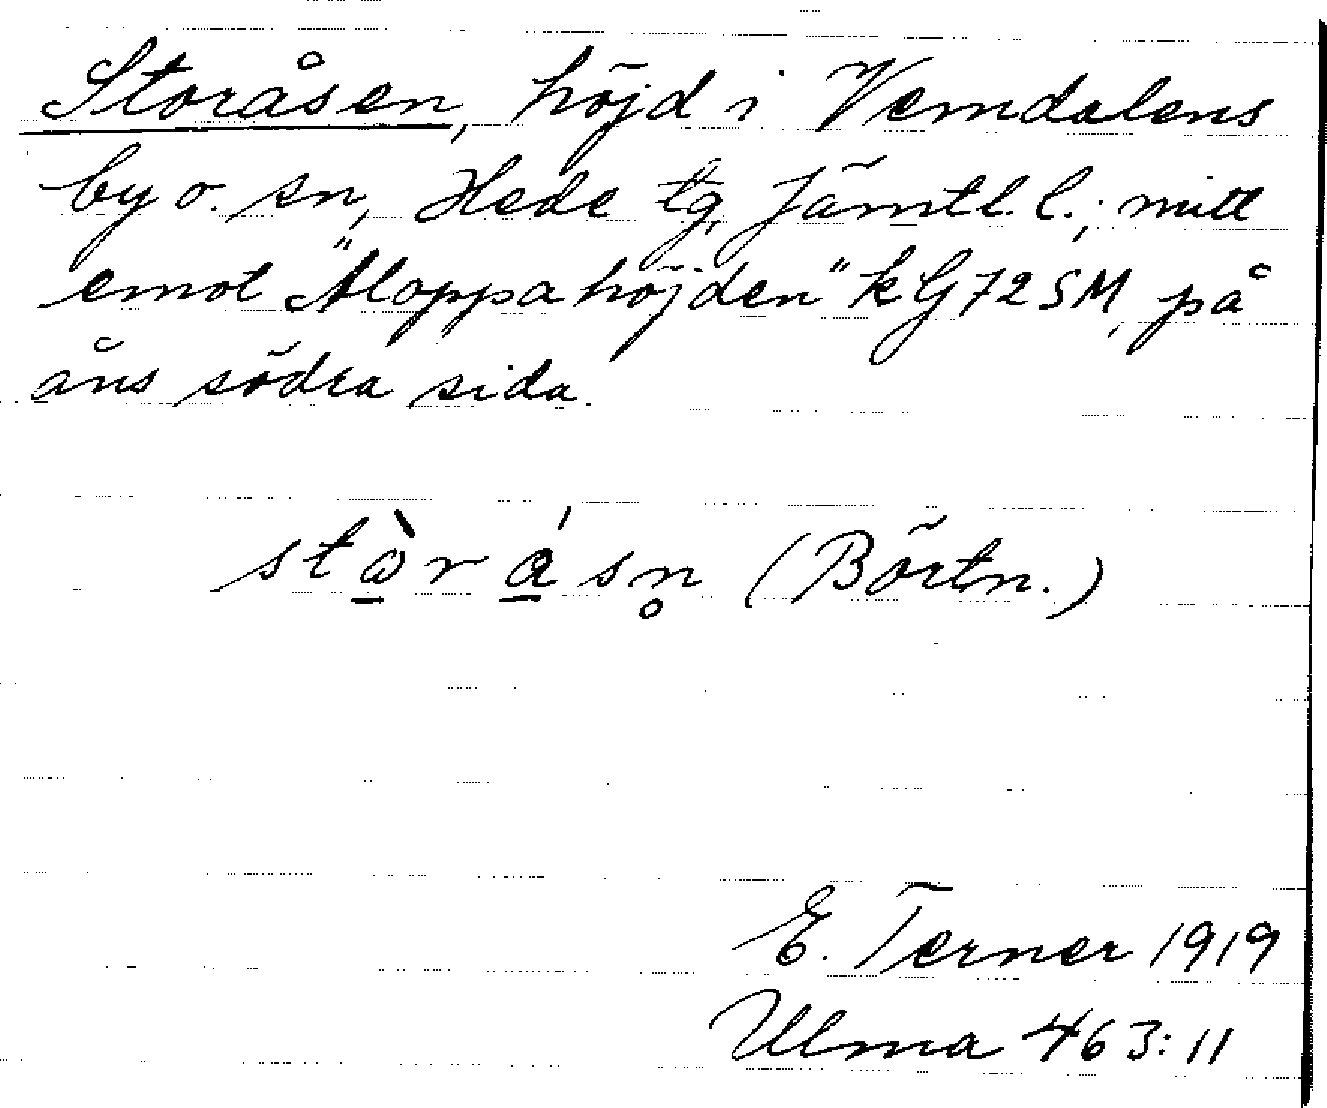 Storåsen, höjd i Vemdalens
by o. sn, Hede tg, Jämtl. l.; mitt
emot "Aloppahöjden" k G 72 SM, på
åns södra sida.
stòrásn̥ (Börtn.)
E. Terner 1919
Ulma 463:11